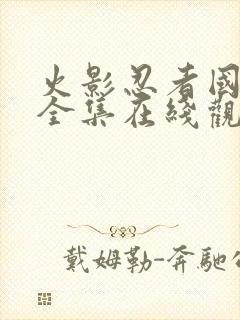 火影忍者國
全集在綫觀
戴姆勒-奔馳公